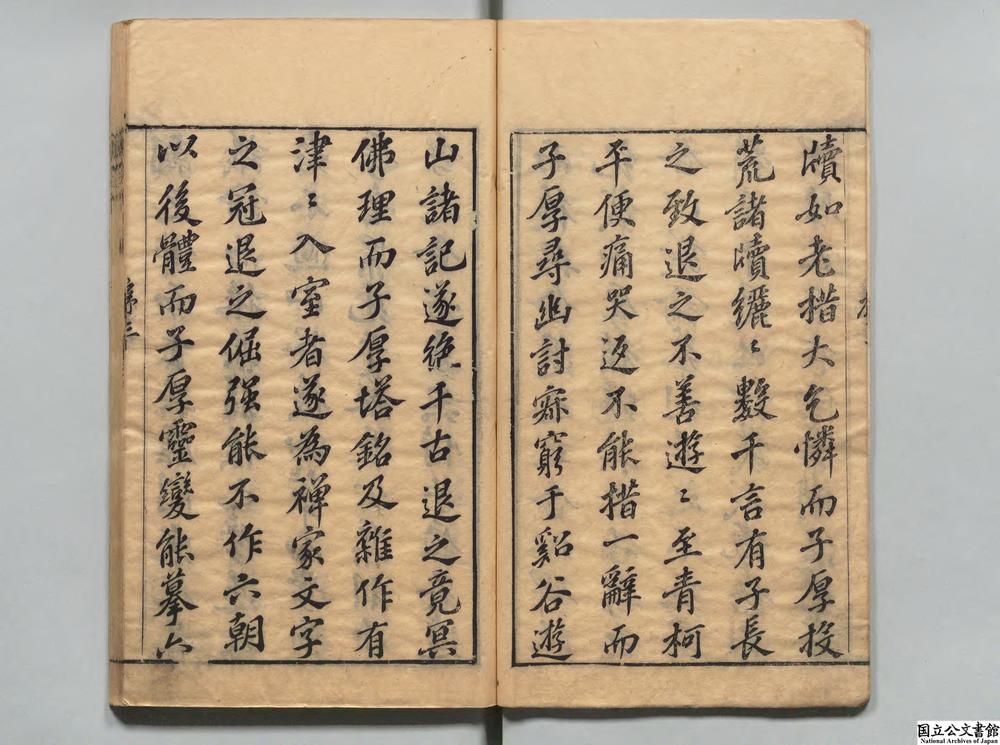 牘如老措大乞憐而子厚投
荒諸牘纚〻數千言有子長
之致退之不善遊〻至青柯
平便痛哭返不能措一辭而
子厚尋幽討寂窮于谿谷遊
山諸記遂絶千古退之竟冥
佛理而子厚塔銘及雜作有
津〻入室者遂為禪家文字
之冠退之倔强能不作六朝
以後體而子厚靈變能摹六
序三
国立公文書館
National Archives of Japan